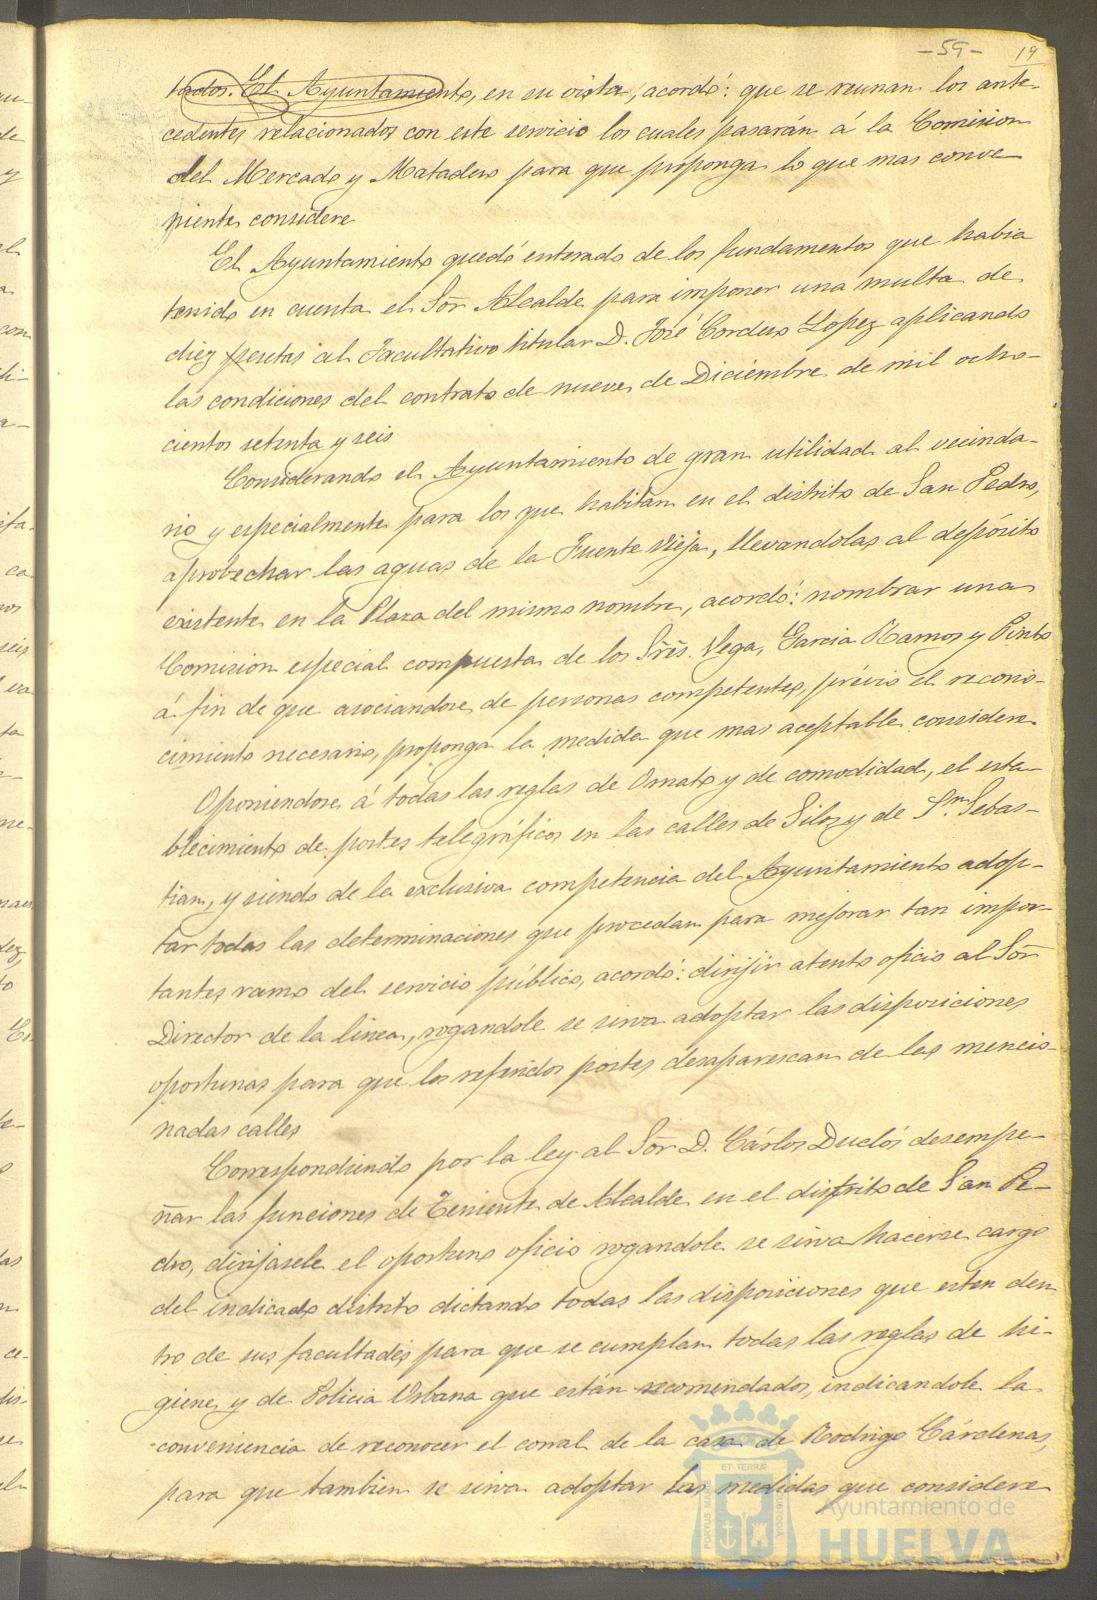 -59- 19
tados. El Ayuntamiento, en su vista, acordó: que se reunan los ante-
cedentes relacionados con este servicio los cuales pasarán á la Comision
del Mercado y Matadero para que proponga lo que mas conve-
niente considere
El Ayuntamiento quedó enterado de los fundamentos que habia
tenido en cuenta el Sor Alcalde para imponer una multa de
diez pesetas al Facultativo titular D. José Cordero Lopez aplicando
las condiciones del contrato de nueve de Diciembre de mil ocho-
cientos setenta y seis
Considerando el Ayuntamiento de gran utilidad al vecinda-
rio y especialmente para los que habitan en el distrito de San Pedro,
aprobechar las aguas de la Fuente Vieja, llevandolas al depósito
existente en la Plaza del mismo nombre, acordó: nombrar una
Comision especial compuesta de los Sres. Vega, Garcia Ramos y Pinto
á fin de que asociandose de personas competentes, prévio el recono-
cimiento necesario, proponga la medida que mas aceptable considere
Oponiendose á todas las reglas de Ornato y de comodidad, el esta-
blecimiento de postes telegráficos en las calles de Silos y de Sn. Sebas-
tian, y siendo de la exclusiva competencia del Ayuntamiento adop-
tar todas las determinaciones que procedan para mejorar tan impor-
tantes ramo del servicio público, acordó: dirijir atento oficio al Sor
Director de la linea, rogandole se sirva adoptar las disposiciones
oportunas para que los referidos postes desaparescan de las mencio-
nadas calles
Correspondiendo por la ley al Sor D. Cárlos Duclós desempe-
ñar las funciones de Teniente de Alcalde en el distrito de San Pe-
dro, dirijasele el oportuno oficio rogandole se sirva hacerse cargo
del indicado distrito dictando todas las disposiciones que esten den
tro de sus facultades para que se cumplan todas las reglas de hi-
giene y de Policia Urbana que están recomendadas, indicandole la
conveniencia de reconocer el corral de la casa de Rodrigo Cárdenas,
para que tambien se sirva adoptar las medidas que considere
PORTUS MARIS ET TERRÆ CUSTODIA
Ayuntamiento de
HUELVA